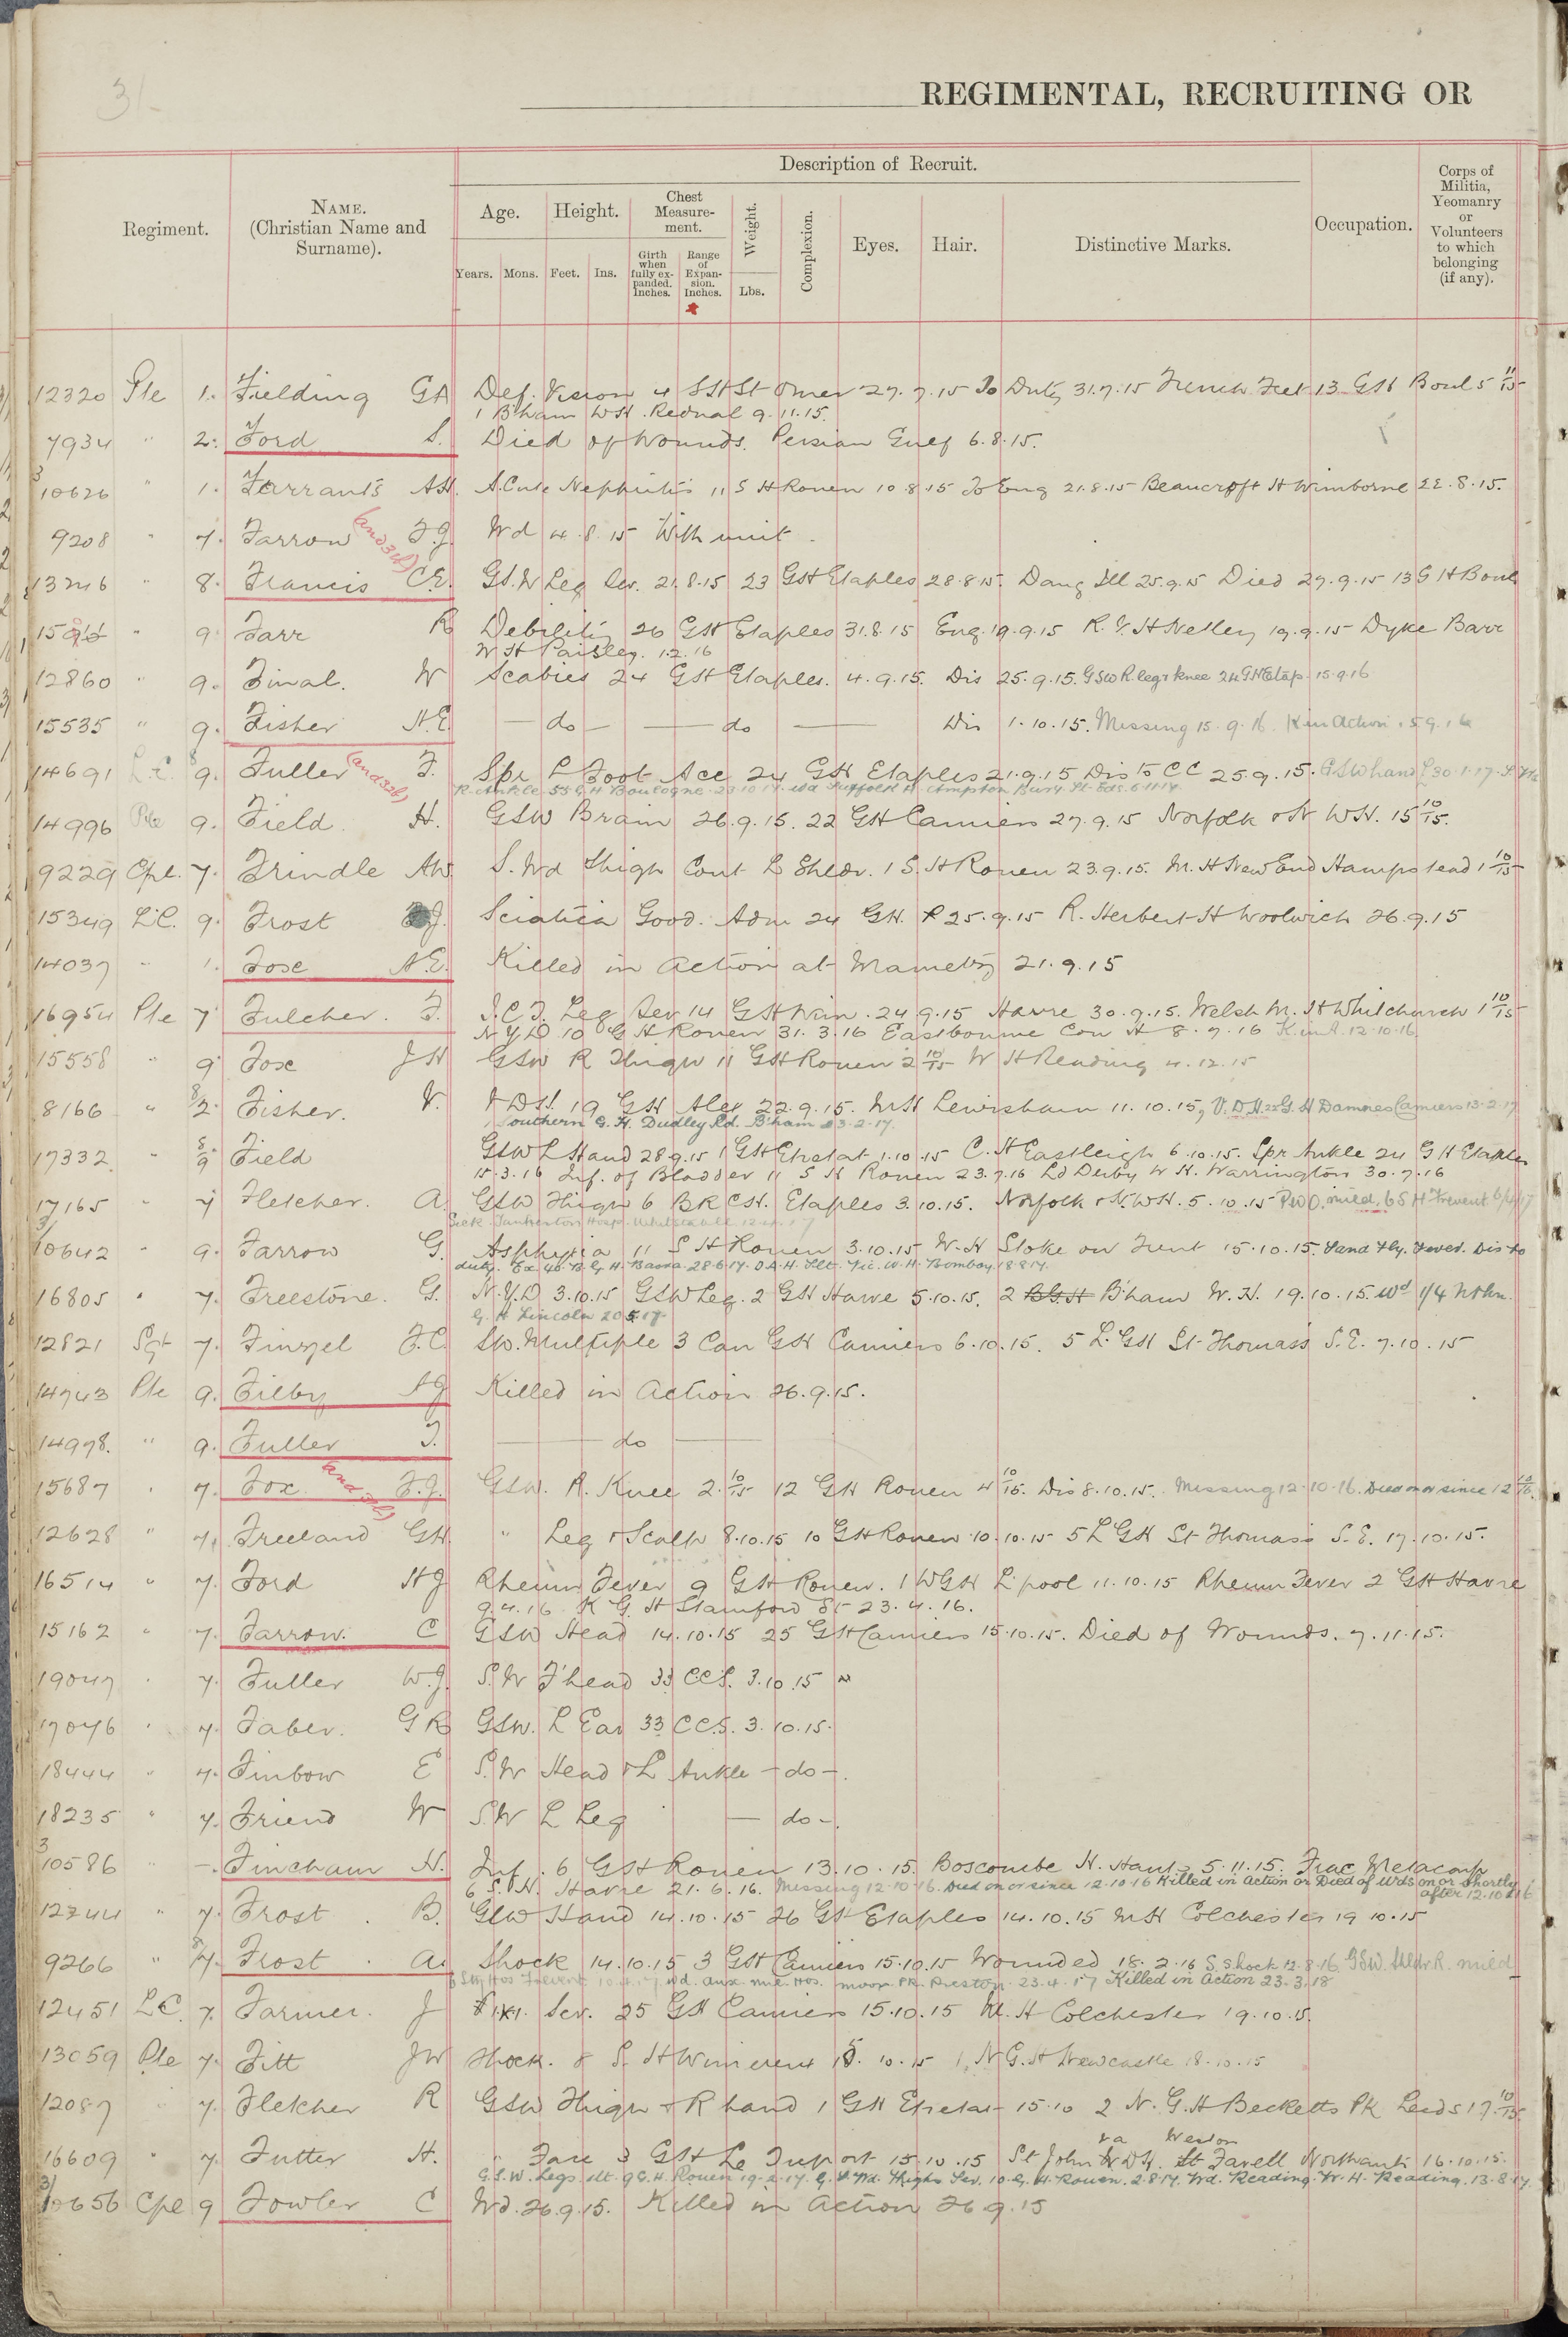 3/-
REGIMENTAL, RECRUITING OR
Regiment.
NAME.
(Christian Name and
Surname).
Description of Recruit.
Age.
Height.
Chest
Measure-
ment.
Weight.
Complexion.
Eyes.
Hair.
Distinctive Marks.
Occupation.
Corps of
Militia,
Yeomanry
or
Volunteers
to which
belonging
(if any).
Years.
Mons.
Feet.
Ins.
Girth
when
fully ex-
panded.
Inches.
Range
of
Expan-
sion.
Inches.
Lbs.
12320 Pte 1. Fielding GA Def. Vision 4 SH St Omer 27.7.15 To Duty 31.7.15 Trench Feet 13 GH Boul 5 11/15
1 B'ham WH. Rednal 9.11.15.
7934 " 2. Ford S. Died of Wounds. Persian Gulf 6.8.15.
3/10626 " 1. Farrants AH. Acute Nephritis 11 S H Rouen 10.8.15 To Eng 21.8.15 Beaucroft H Wimborne 22.8.15.
9208 " 7. Farrow F.J. Wd 4.8.15 With unit.
(and 32b)
13246 " 8. Francis C.E. GS.W Leg Sev. 21.8.15 23 GH Etaples 28.8.15. Dang Ill 25.9.15 Died 27.9.15 13 G H Boul
" 9. Farr R Debility 26 GH Etaples 31.8.15 Eng. 19.9.15 R.V.H Netley 19.9.15 Dyke Barr
W H Paisley. 1.2.16
12860 " 9. Final. W Scabies 24 GH Etaples. 4.9.15. Dis 25.9.15. GSW R leg & knee 24 GH Etap 15.9.16
15535 " 9. Fisher A.E. — do — — do — Dis 1.10.15. Missing 15.9.16. K in Action 15.9.16
14691 L.C. 8/9. Fuller F. Spr L Foot Acc 24 GH Etaples 21.9.15 Dis to CC 25.9.15. GSW hand L 30.1.17.
(and 32b)
R. Ankle 55 G H Boulogne 23.10.17. Suffolk H. Ampton Bury St Eds. 6.11.17
14996 Pte 9. Field. H. GSW Brain 26.9.15. 22 GH Camiers 27.9.15 Norfolk & N WH. 15 10/15.
9229 Cpl. 7. Frindle AW S. Wd Thigh Cont L Shldr. 1 S.H Rouen 23.9.15. M.H New End Hampstead 1 10/15
15349 L.C. 9. Frost J. Sciatica Good. Adm 24 GH. 25.9.15 R. Herbert H Woolwich 26.9.15
14037 " 1. Fox A.E. Killed in Action at Mametz 21.9.15
16954 Pte 7 Fulcher. F. I.C.T. Leg Sev 14 GH Wim. 24.9.15 Havre 30.9.15. Welsh M.H Whitchurch 1 10/15
N.Y.D 10 G H Rouen 31.3.16 Eastbourne Con H 8.7.16 K in A. 12.10.16
15558 " 9 Fox J H GSW R Thigh 11 GH Rouen 2 10/15 W H Reading 4.12.15
8166 " 8/2. Fisher. V. VDH. 19 GH Alex 22.9.15. MH Lewisham 11.10.15, V.D.H. 22 G.H Damnes Camiers 13.2.17
1 Southern G.H. Dudley Rd. B'ham 23.2.17.
17332 " 8/9 Field GSW L Hand 28.9.15 1 GH Etretat 1.10.15 C.H Eastleigh 6.10.15. Spr Ankle 24 G H Etaples
15.3.16 Inf. of Bladder 11 S H Rouen 23.7.16 Ld Derby W H. Warrington 30.7.16
17165 " 7 Fletcher. A. GSW Thigh 6 BRCH. Etaples 3.10.15. Norfolk & N.WH. 5.10.15 PUO. mild. 6 S H Frevent 6/4/17
Sick Tankerton Hosp. Whitstable 12.4.17
3/10642 " 9. Farrow G. Asphyxia 11 S H Rouen 3.10.15 W.H Stoke on Trent 15.10.15. Sand Fly. Fever. Dis to
duty. Ex 40. B.G.H. Basra 28.6.17. D.A.H. Slt. Vic. W.H. Bombay 18.8.17.
16805 " 7. Freestone. G. N.Y.D 3.10.15 GSW Leg. 2 GH Havre 5.10.15. 2 B'ham W.H. 19.10.15. Wd 1/4 Nthn.
G.H Lincoln 20.5.17
12821 Sgt 7. Finzel F.C. SW. Multiple 3 Can GH Camiers 6.10.15. 5 L. GH St Thomas's S.E. 7.10.15
14743 Pte 9. Filby AJ Killed in Action 26.9.15.
14978. " 9. Fuller T. — do —
15687 " 7. Fox F.J. GSW. R. Knee 2.10/15 12 GH Rouen 4 10/15. Dis 8.10.15. Missing 12.10.16. Died on or since 12 10/16
(and 32b)
12628 " 7. Freeland GH. " Leg & Scalp 8.10.15 10 GH Rouen 10.10.15 5 L GH St Thomas's S.E. 17.10.15.
16514 " 7. Ford HJ Rheum Fever 9 GH Rouen. 1 WGH L'pool 11.10.15 Rheum Fever 2 GH Havre
9.4.16 K G H Stamford St 23.4.16.
15162 " 7. Farrow. C GSW Head 14.10.15 25 GH Camiers 15.10.15. Died of Wounds. 7.11.15.
19047 " 7. Fuller W.J. S.W F'head 33 C.C.S. 3.10.15
17046 " 7. Faber. G R GSW. L Ear 33 C.C.S. 3.10.15.
18444 " 7. Finbow E S.W Head & L Ankle — do —.
18235 " 7. Friend W S.W L Leg — do —.
3/10586 " —. Fincham H. Inf. 6 GH Rouen 13.10.15. Boscombe H. Hants 5.11.15. Frac Metacarp
6 G.H. Havre 21.6.16. Missing 12.10.16. Died on or since 12.10.16 Killed in action or Died of wds on or shortly
after 12.10.16
12744 " 7. Frost. B. GSW Hand 14.10.15 26 GH Etaples 14.10.15 MH Colchester 19.10.15
9266 " 8/7. Frost. A. Shock 14.10.15 3 GH Camiers 15.10.15 Wounded 18.2.16 S. Shock 12.8.16. GSW. Shldr R. mild
6 Sty Hos Frevent 10.4.17. Wd. Aux. Mil. Hos. Moor PK. Preston. 23.4.17 Killed in Action 23.3.18
12451 L.C 7. Farmer. J Sev. 25 GH Camiers 15.10.15 M.H Colchester 19.10.15.
13059 Pte 7. Fitt JW Shock. 8 S.H Wimereux 15.10.15 1. N G.H Newcastle 18.10.15
12087 " 7. Fletcher R GSW Thigh & R hand 1 GH Etretat 15.10 2 N.G.H Becketts PK Leeds 17.10/15.
16609 " 7. Futter H. " Face 3 GH Le Treport 15.10.15 St John VAD H. Weedon Northants 16.10.15.
G.S.W. Legs slt. 9 G.H. Rouen 19.2.17. G.S Wd. Thighs Sev. 10 G.H. Rouen. 2.8.17. Wd. Reading. W.H. Reading. 13.8.17
3/10656 Cpl 9 Fowler C Wd. 26.9.15. Killed in Action 26.9.15